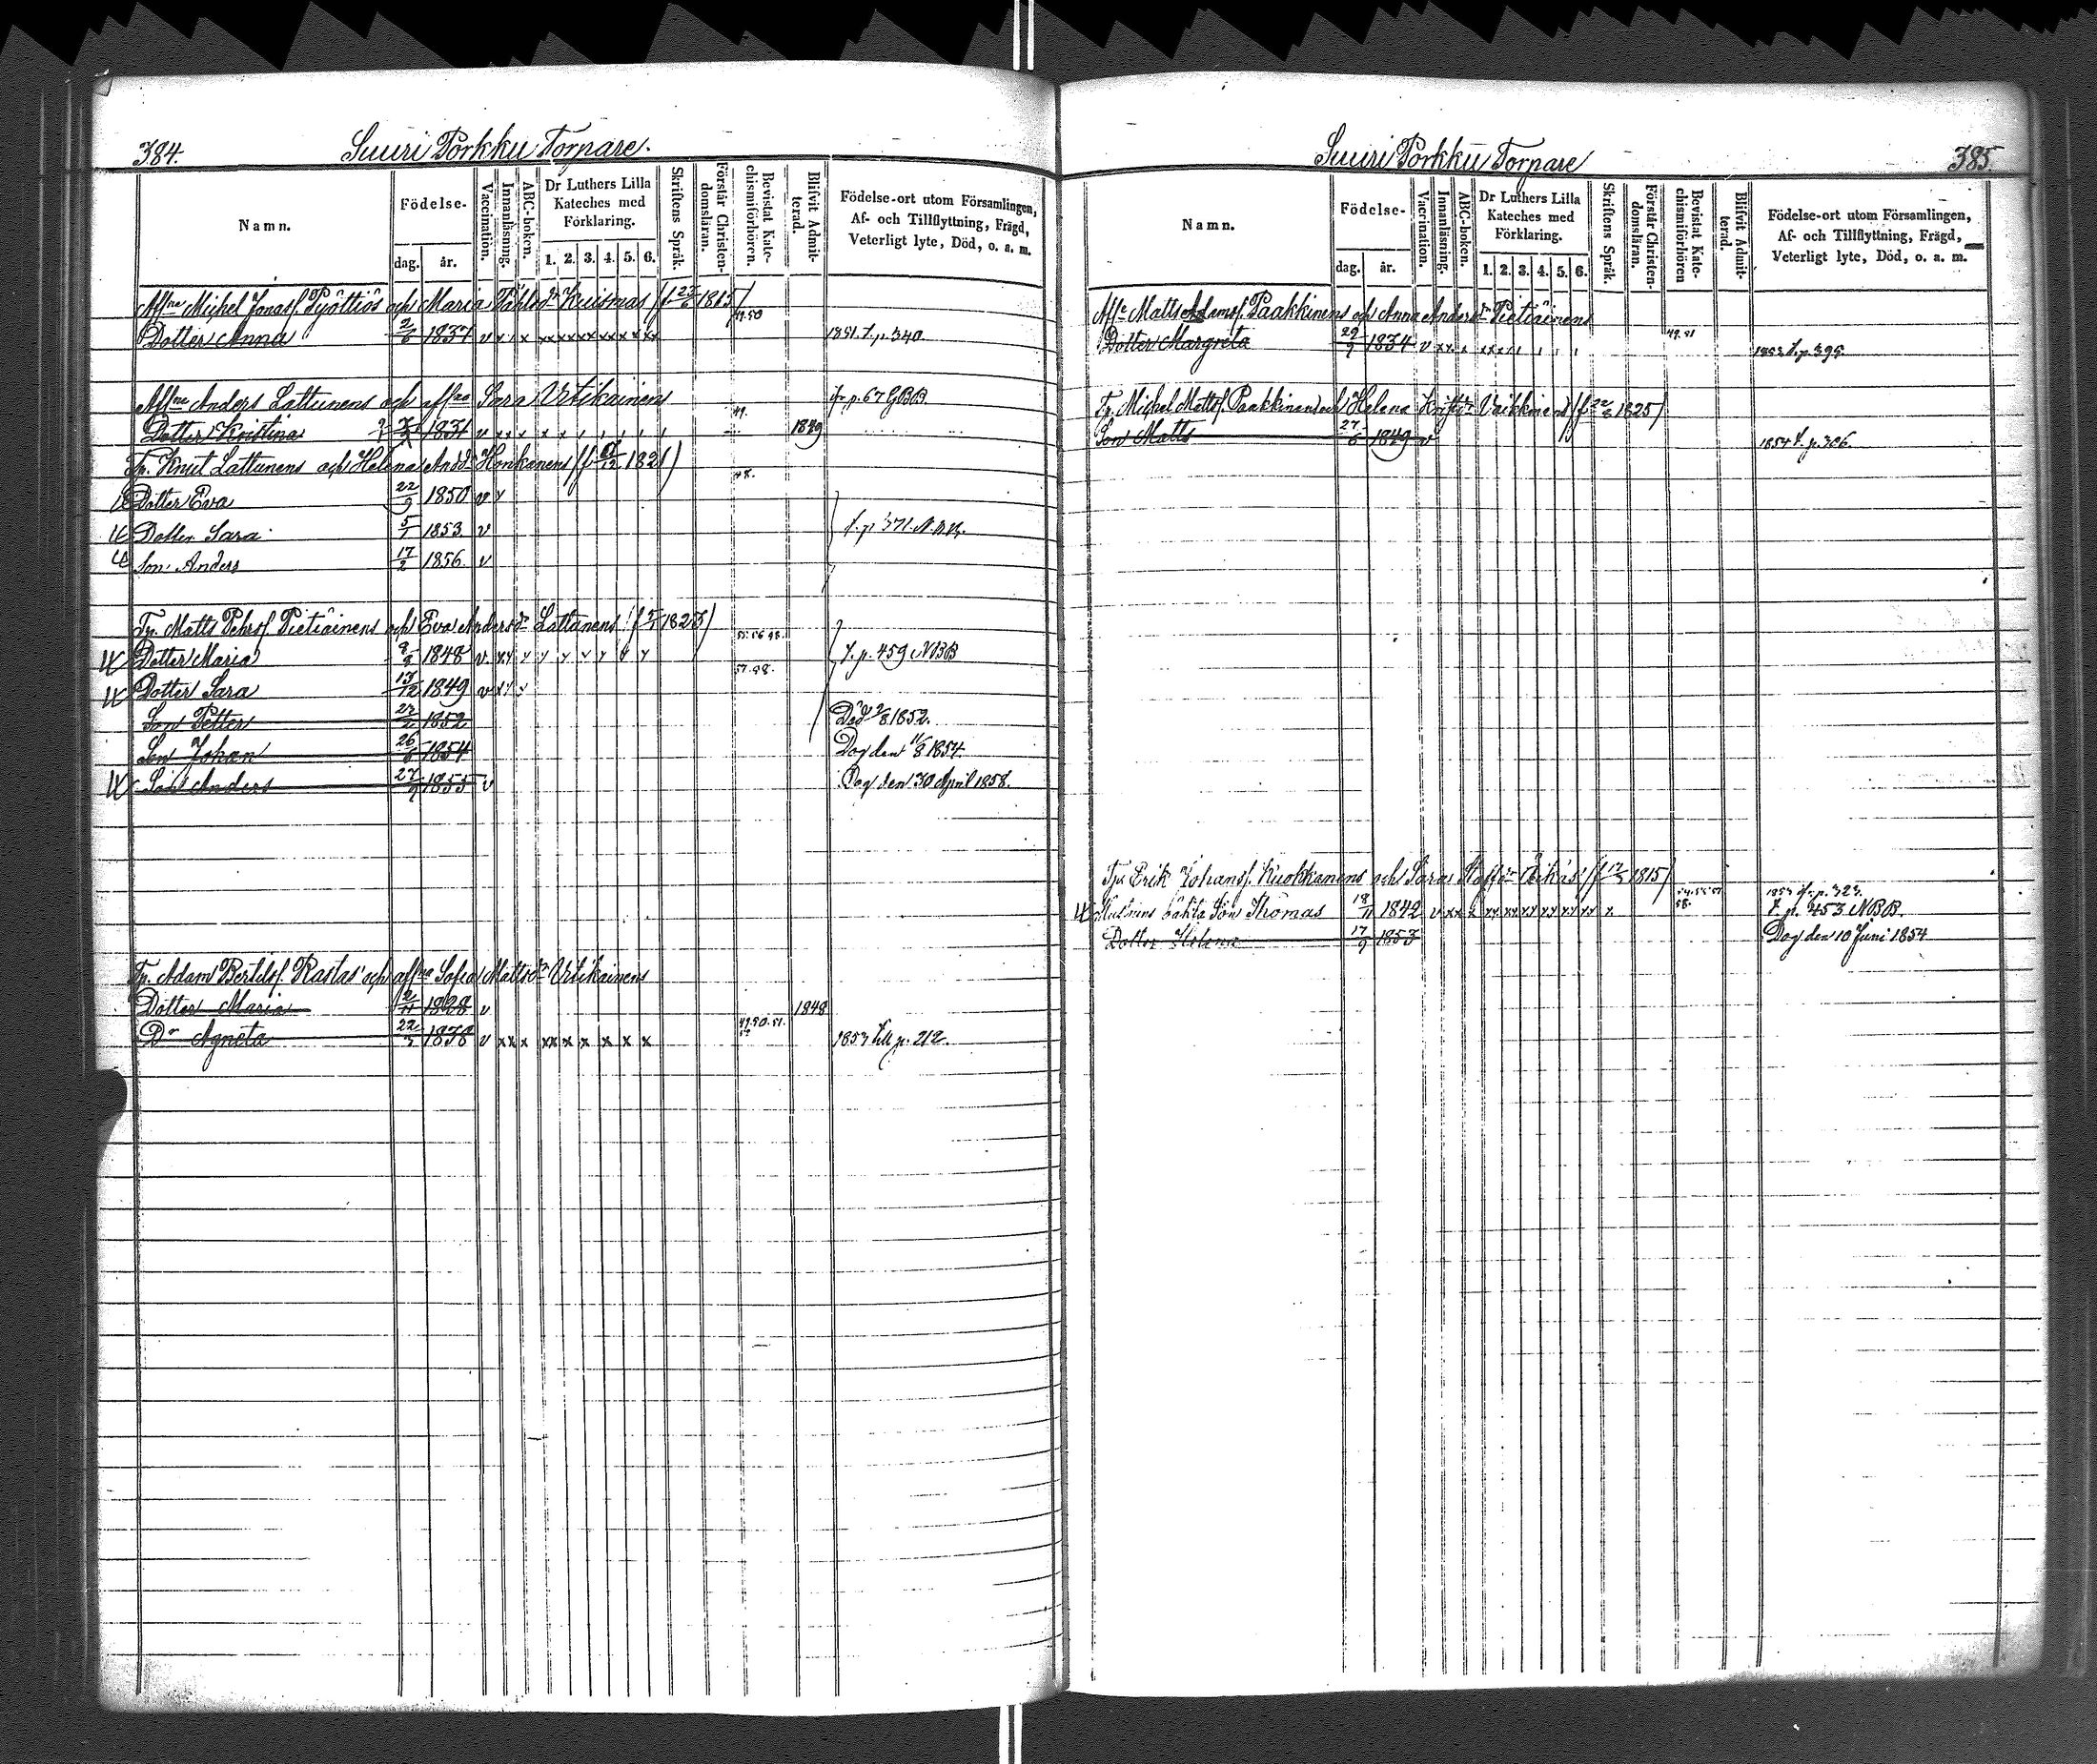 384. Suuri Porkku Torpare.
Namn. Födelse- dag. år. Vaccination. Innanläsning. ABC-boken. Dr Luthers Lilla Kateches med Förklaring. 1. 2. 3. 4. 5. 6. Skriftens Språk. Förstår Christendomsläran. Bevistat Katechismiförhören. Blifvit Admitterad. Födelse-ort utom Församlingen, Af- och Tillflyttning, Frägd, Veterligt lyte, Död, o. a. m.
Michel Jonass. Pyöttiös och Maria Kuismas (f 23/6 1815)
49.50
Dotter Anna 1837 v x x x 1851. t. p. 340.
Anders Lattunens och Sara Urtikainens fr. p. 67 GBB
49.
Dotter Kristina 1831 v 1849
Tp. Knut Lattunens och Helena And:dr Honkanens 1821)
48.
Dotter Eva 22/9 1850 v
Dotter Sara 5/1 1853 v t. p. 371. N.B.B.
Son Anders 17/2 1856. v
Tp. Matts Pehrs. Pietiäinens och Eva Andersdr Lattunens (f 5/1 1823)
55.56.98.
Dotter Maria 1848 v t. p. 459 NBB
57.98.
Dotter Sara 13/12 1849 v
Son Petter 1852 Dog 2/8 1852.
Son Johan 26/6 1854 Dog den 11/8 1854.
Son Anders 27/9 1855 v Dog den 30 April 1858.
Tp. Adam Bertils. Rastas och Sofia Mattsdr Urtikainens
Dotter Maria 2/11 1828 v 1848
49.50.51.
Dr Agneta 22/3 1838 v xx x xx x x x x x 1853 till p. 212.
Suuri Porkku Torpare 385.
Namn. Födelse- dag. år. Vaccination. Innanläsning. ABC-boken. Dr Luthers Lilla Kateches med Förklaring. 1. 2. 3. 4. 5. 6. Skriftens Språk. Förstår Christendomsläran. Bevistat Katechismiförhören Blifvit Admitterad. Födelse-ort utom Församlingen, Af- och Tillflyttning, Frägd, Veterligt lyte, Död, o. a. m.
Matts Adams. Paakkinens och Anna Andersdr Pietiäinens
49.51
Dotter Margreta 29/9 1834 v 1853 t. p. 395.
Tp. Michel Matts. Paakkinens och Helena Vaikkinens 1825)
Son Matts 27/6 1849 v 1854 t. p. 306.
Tp. Erik Johans. Kuokkanens och Sara 1815)
1853 fr. p. 323.
58.
Hustruns oäkta Son Thomas 18/11 1842 v xx x t. p. 453 NBB.
Dotter Helena 17/9 1853 Dog den 10 Juni 1854